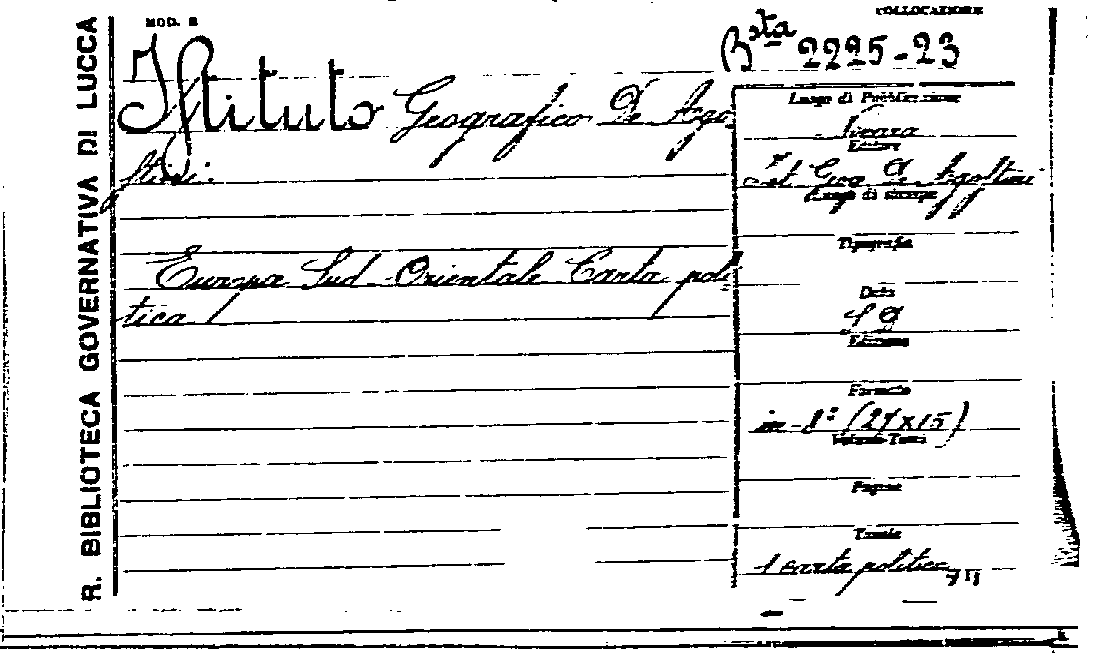 R. BIBLIOTECA GOVERNATIVA DI LUCCA
MOD. B
COLLOCAZIONE
Bsta 2225-23
Istituto Geografico De Ago
stini.
Europa Sud-Orientale Carta poli
tica /
Luogo di Pubblicazione
Novara
Editore
Ist Geo De Agostini
Luogo di stampa
Tipografia
Data
Edizione
Formato
in-8° (27x15)
Volume-Tomo
Pagine
Tavole
1 carta politica